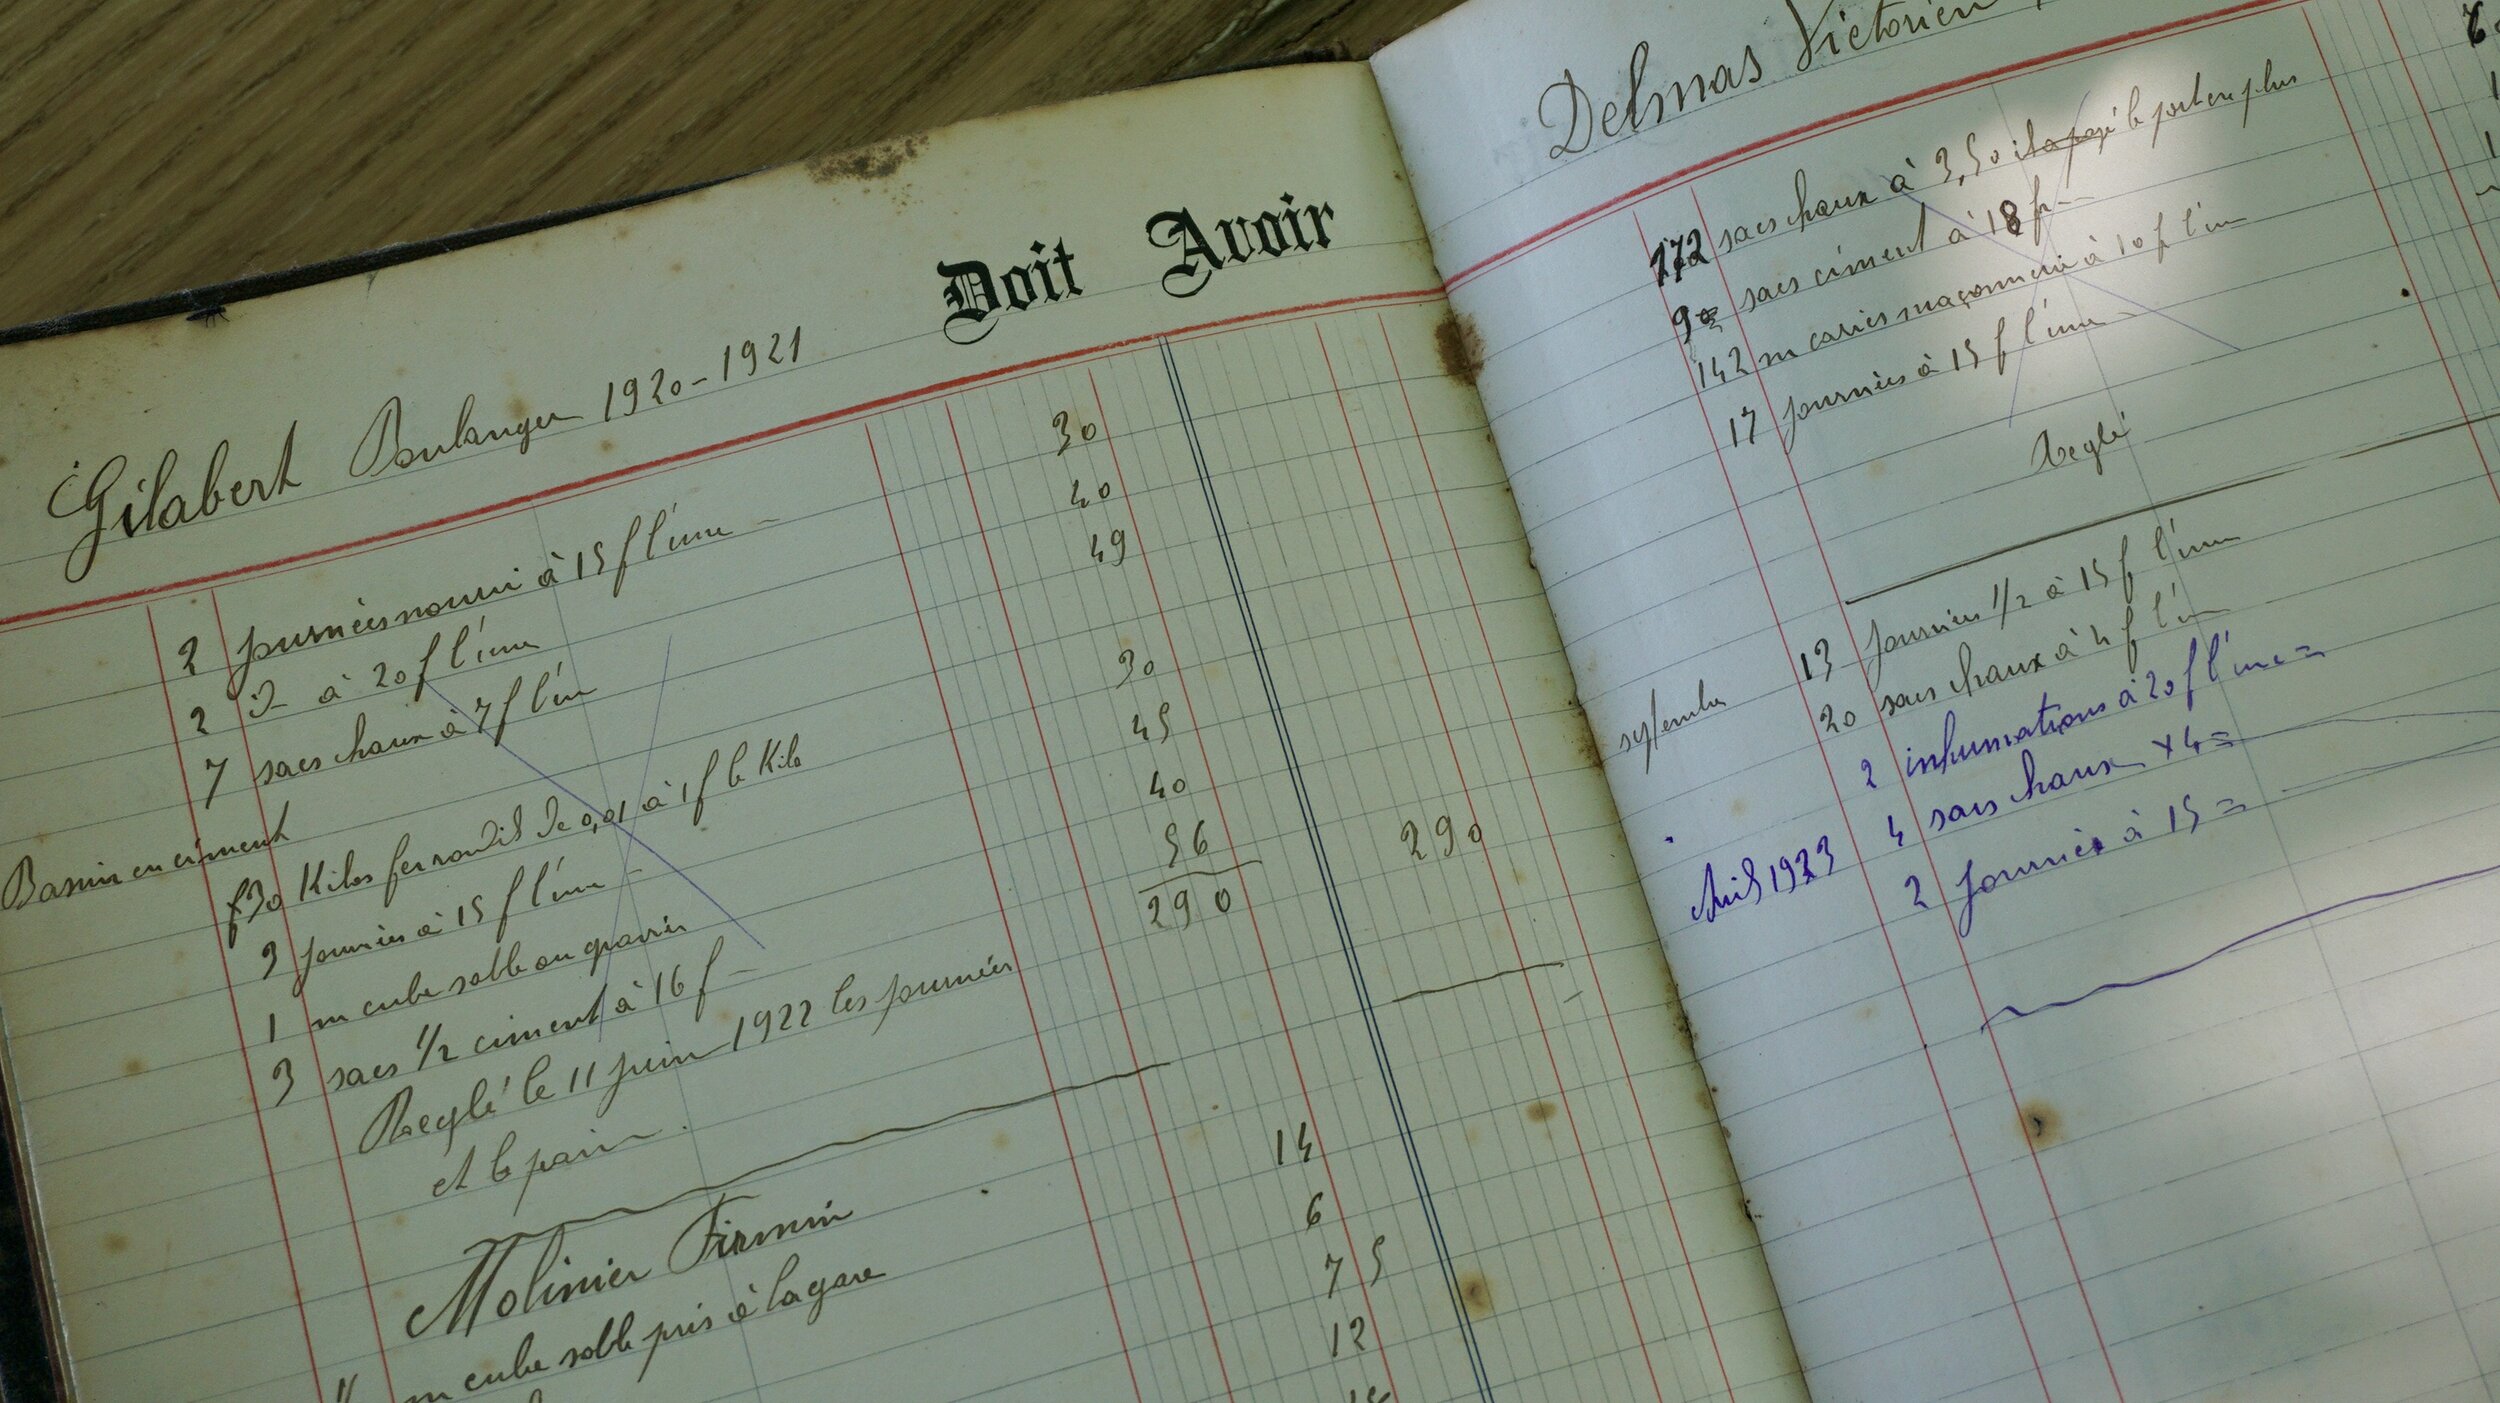 Doit Avoir
Gilabert Boulanger 1920-1921
2 journées nourri à 15 f l'une - 30
2 d° à 20 f l'une 40
7 sacs chaux à 7 f l'un 49
Bassin en ciment
30 Kilos fer rond de 0,01 à 1 f le Kilo 30
3 journées à 15 f l'une - 45
1 m cube sable ou gravier 40
3 sacs 1/2 ciment à 16 f - 56
290 290
Reglé le 11 juin 1922 les journées
et le pain.
Molinier Firmin
m cube sable pris à la gare 14
6
7 5
12
Delmas Victorien
172 sacs chaux à 3,50 il a payé le port en plus
90 sacs ciment à 18 f
142 m carrés maçonnerie à 10 f l'un
17 journées à 15 f l'une -
Reglé
septembre 13 journées 1/2 à 15 f l'une
20 sacs chaux à 4 f l'un
2 inhumations à 20 f l'une =
Avril 1923 4 sacs chaux x 4 =
2 journées à 15 =